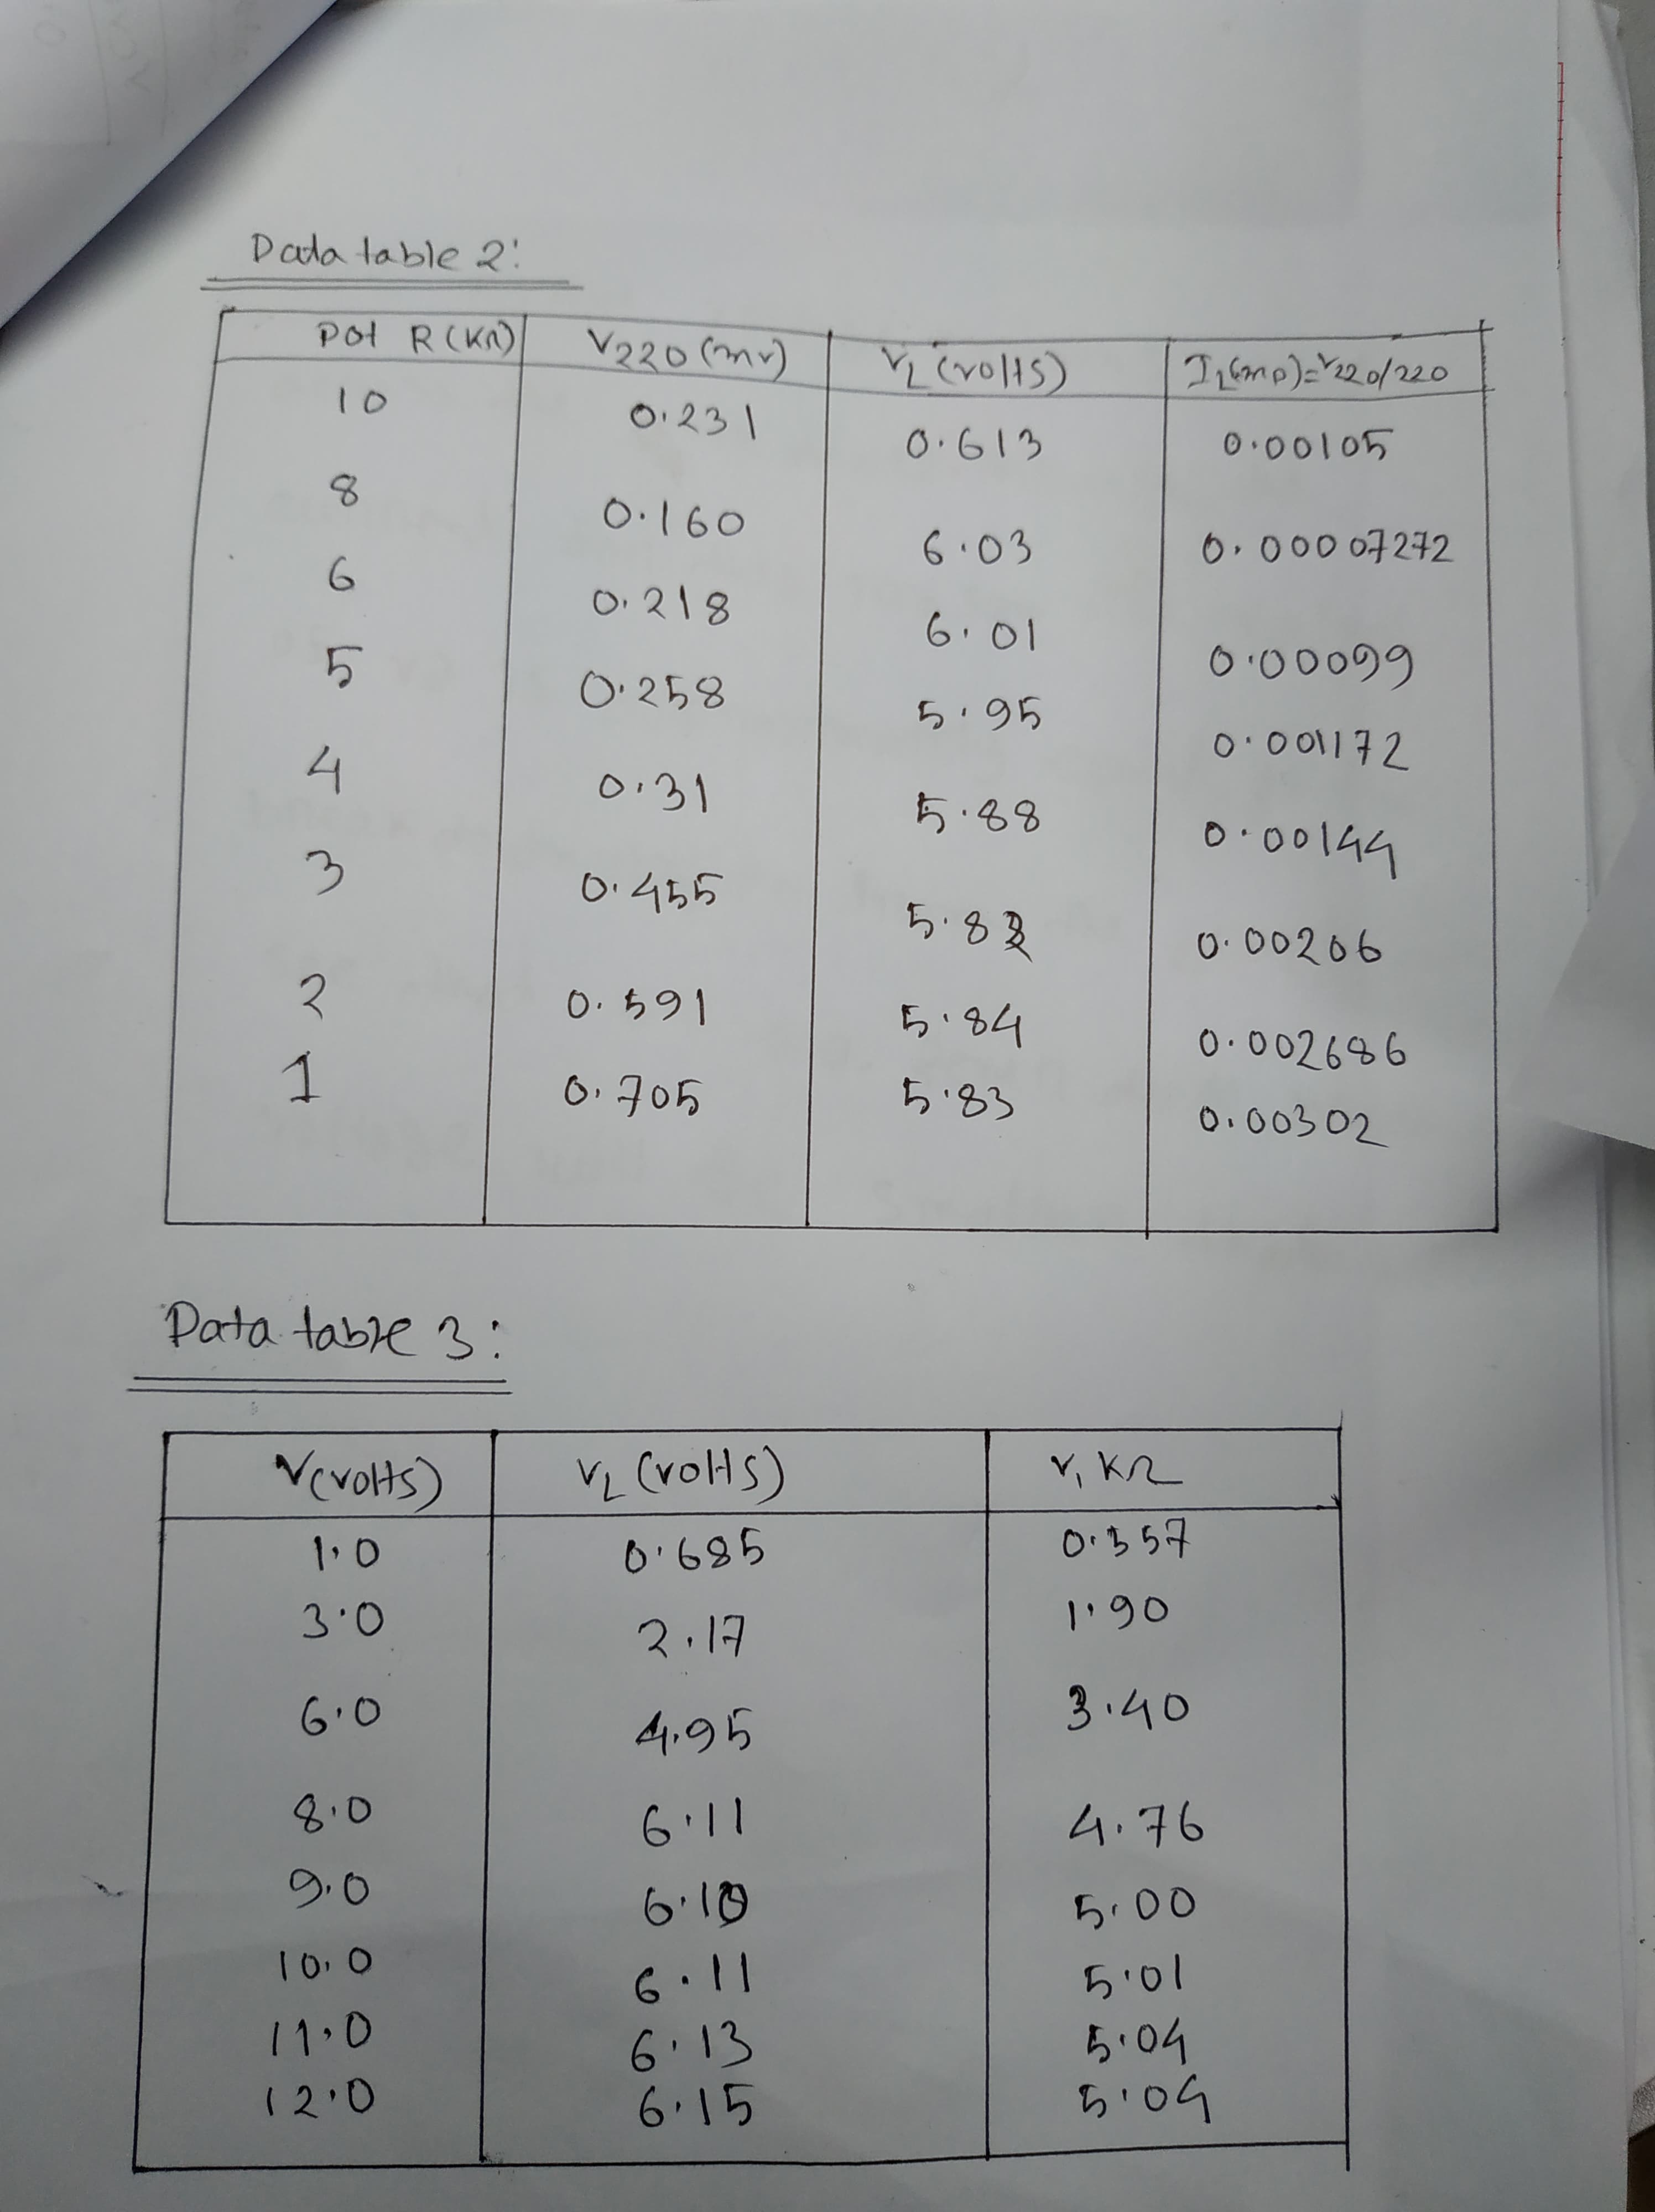 Data table 2:
Pot R(KΩ) V220 (mv) VL (volts) IL(mA)=V220/220
10 0.231 0.613 0.00105
8 0.160 6.03 0.00007272
6 0.218 6.01 0.00099
5 0.258 5.95 0.001172
4 0.31 5.88 0.00144
3 0.455 0.00206
2 0.591 5.84 0.002686
1 0.705 5.83 0.00302
Data table 3:
V(volts) VL (volts) V, KΩ
1.0 0.685 0.357
3.0 2.17 1.90
6.0 4.95 3.40
8.0 6.11 4.76
9.0 6.10 5.00
10.0 6.11 5.01
11.0 6.13 5.04
12.0 6.15 5.04